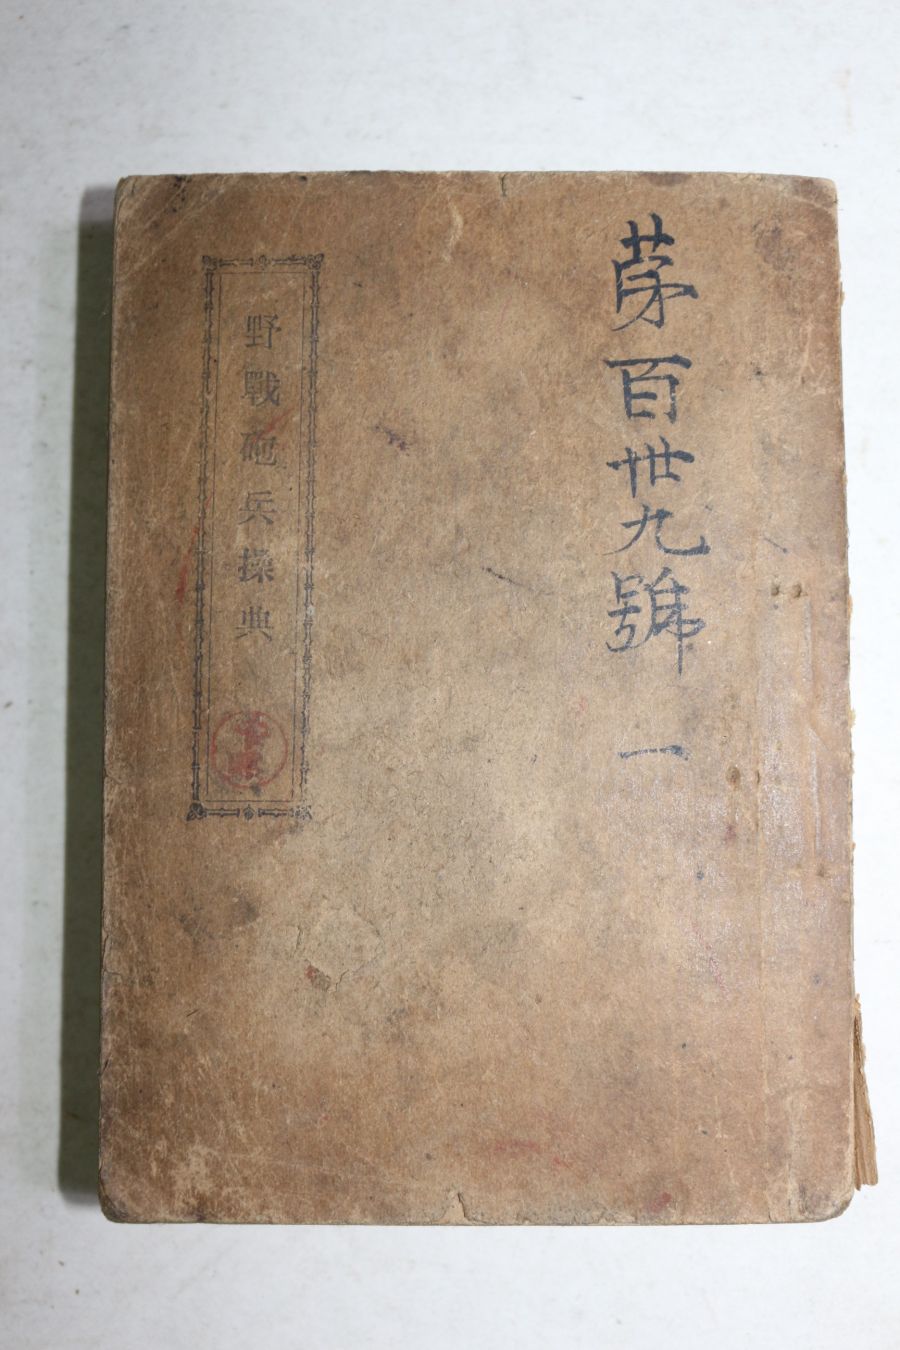 第百卅九號 一
野戰砲兵操典